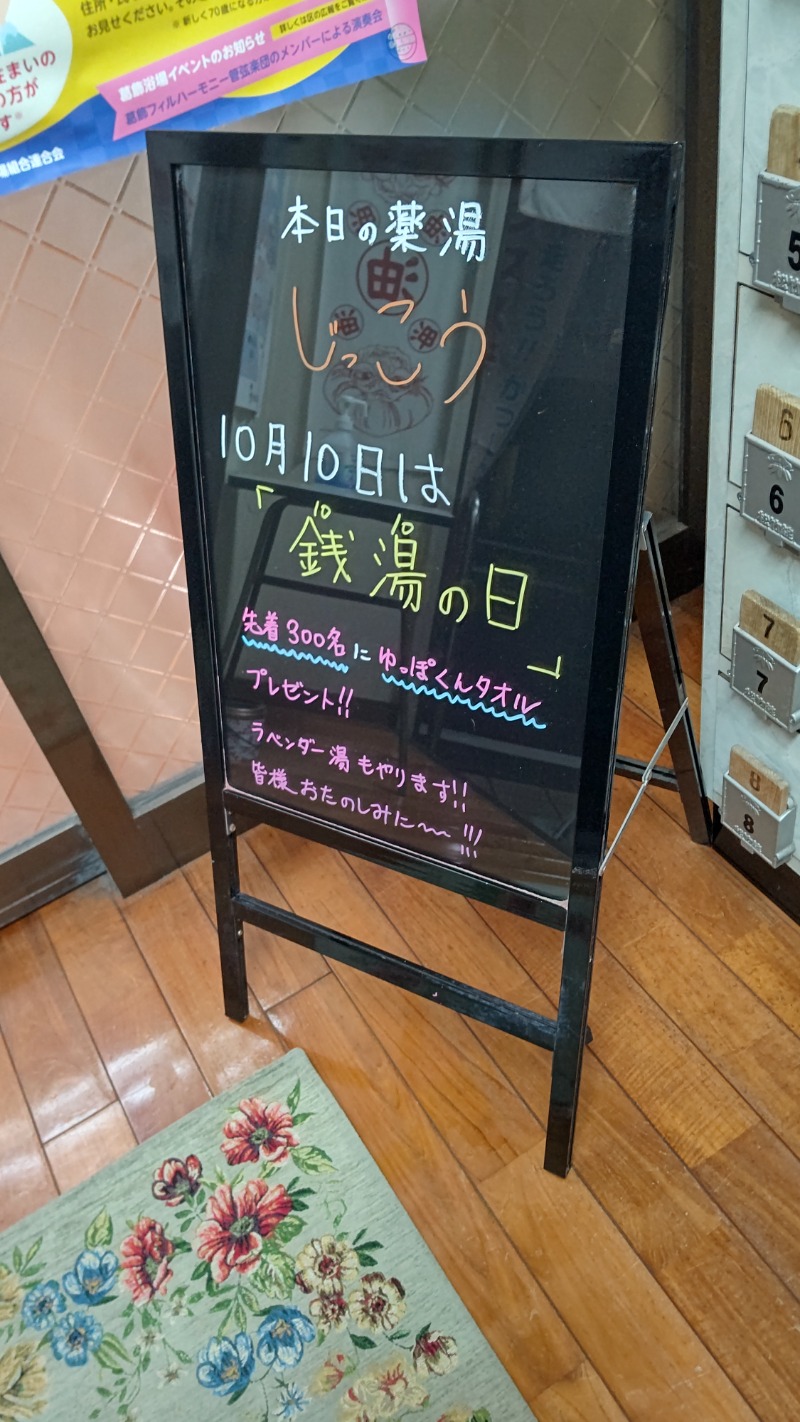 住所・氏
お見せください。その
※新しく70歳になる方
詳しくは区の広報をご覧
葛飾浴場イベントのお知らせ
葛飾フィルハーモニー管弦楽団のメンバーによる演奏会
住まいの
の方が
す※
場組合連合会
本日の薬湯
じっこう
10月10日は
「銭湯の日」
10 10
先着300名にゆっぽくんタオル
プレゼント!!
ラベンダー湯もやります!!
皆様おたのしみに〜〜!!!
5
6
6
7
7
8
8